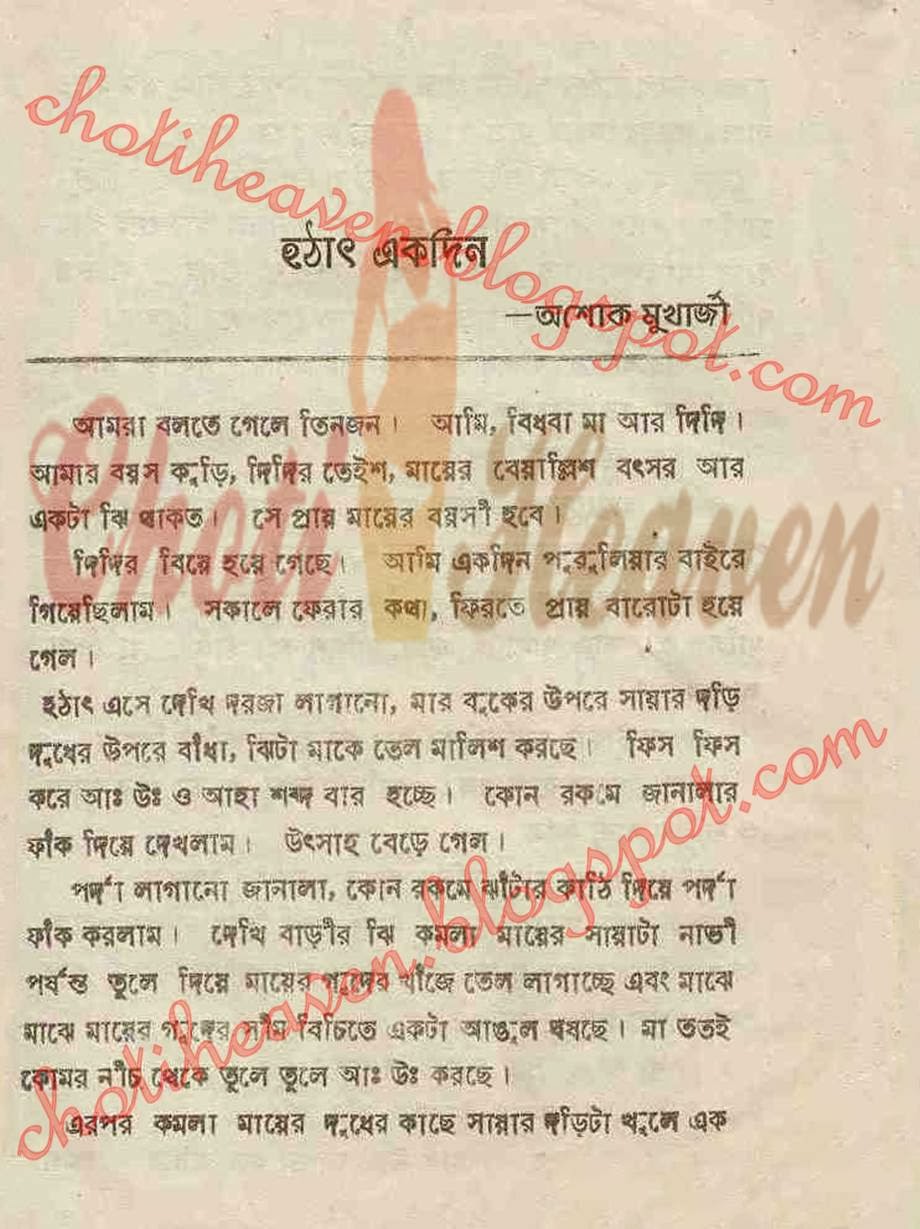 হঠাৎ একদিন
—অশোক মুখার্জী
আমরা বলতে গেলে তিনজন। আমি, বিধবা মা আর দিদি।
আমার বয়স কুড়ি, দিদির তেইশ, মায়ের বেয়াল্লিশ বৎসর আর
একটা ঝি থাকত। সে প্রায় মায়ের বয়সী হবে।
দিদির বিয়ে হয়ে গেছে। আমি একদিন পুরুলিয়ার বাইরে
গিয়েছিলাম। সকালে ফেরার কথা, ফিরতে প্রায় বারোটা হয়ে
গেল।
হঠাৎ এসে দেখি দরজা লাগানো, মার বুকের উপরে সায়ার দড়ি
দুধের উপরে বাঁধা, ঝিটা মাকে তেল মালিশ করছে। ফিস ফিস
করে আঃ উঃ ও আহা শব্দ বার হচ্ছে। কোন রকমে জানালার
ফাঁক দিয়ে দেখলাম। উৎসাহ বেড়ে গেল।
পর্দা লাগানো জানালা, কোন রকমে ঝাঁটার কাঠি দিয়ে পর্দা
ফাঁক করলাম। দেখি বাড়ীর ঝি কমলা মায়ের সায়াটা নাভী
পর্যন্ত তুলে দিয়ে মায়ের গুদের খাঁজে তেল লাগাচ্ছে এবং মাঝে
মাঝে মায়ের গুদের সীম বিচিতে একটা আঙুল ঘষছে। মা ততই
কোমর নীচ থেকে তুলে তুলে আঃ উঃ করছে।
এরপর কমলা মায়ের দুধের কাছে সায়ার দড়িটা খুলে এক
chotiheaven.blogspot.com
Choti Heaven
chotiheaven.blogspot.com